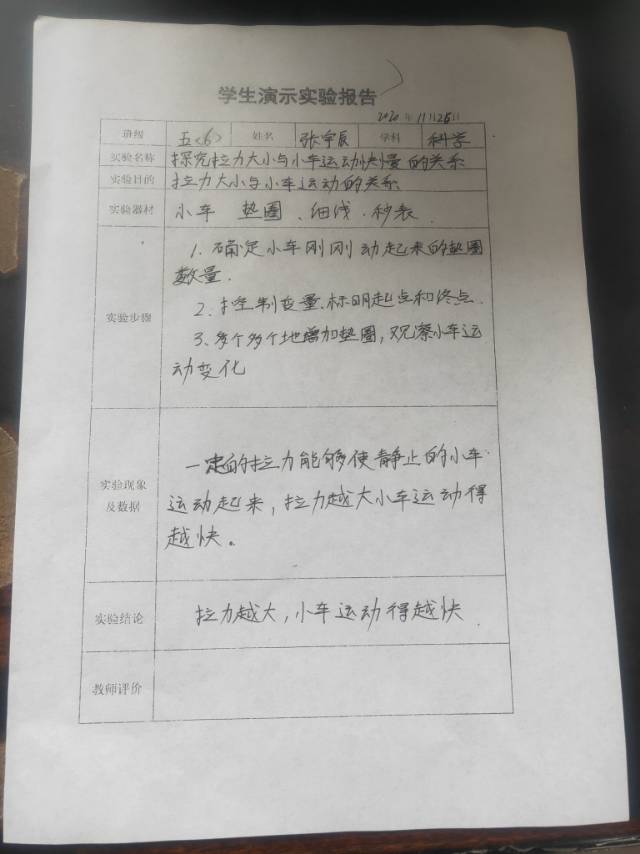 学生演示实验报告
2020年11月25日
班级 五(6) 姓名 张宇辰 学科 科学
实验名称 探究拉力大小与小车运动快慢的关系
实验目的 拉力大小与小车运动的关系
实验器材 小车 垫圈、细线、秒表
实验步骤 1. 确定小车刚刚动起来的垫圈
数量.
2. 控制变量.标明起点和终点.
3、多个多个地增加垫圈,观察小车运
动变化
实验现象
及数据
一定的拉力能够使静止的小车
运动起来,拉力越大小车运动得
越快。
实验结论 拉力越大,小车运动得越快.
教师评价